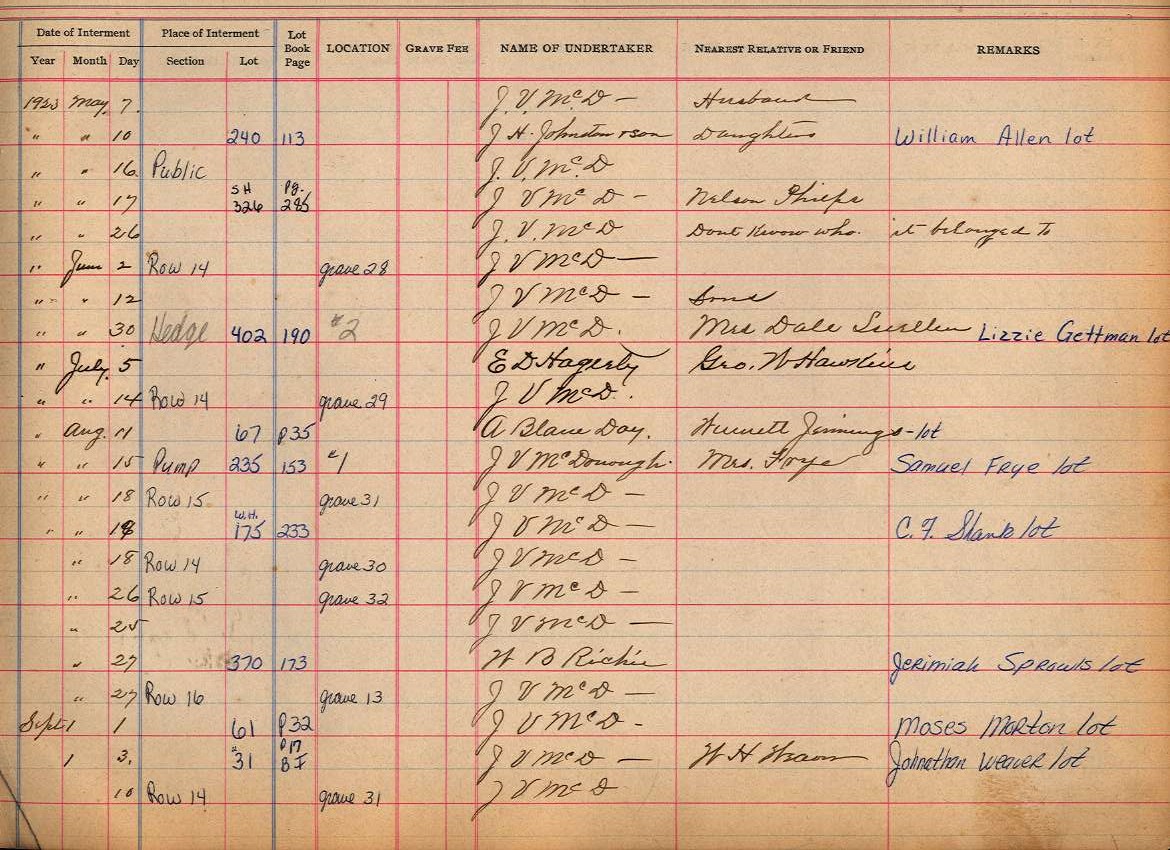 Date of Interment Place of Interment Lot Book Page LOCATION GRAVE FEE NAME OF UNDERTAKER NEAREST RELATIVE OR FRIEND REMARKS
Year Month Day Section Lot
1923 May 7. J. V. McD — Husband
" " 10 240 113 J. H. Johnston & son Daughters William Allen lot
" " 16. Public J. V. McD
" " 17 SH 326 Pg. 285 J V McD — Nelson Phelps
" " 26 J. V. McD Dont Know who. it belonged to
" June 2 Row 14 grave 28 J V McD —
" " 12 J V McD — Sons
" " 30 Hedge 402 190 #2 J V McD. Mrs Dale Lizzie Gettman lot
" July 5 E D Hagerty Geo. W Hawkins
" " 14 Row 14 grave 29 J V McD.
" Aug. 11 67 P35 A Blane Day. Jennings - lot
" " 15 Pump 235 153 #1 J V McDonough. Mrs. Frye Samuel Frye lot
" " 18 Row 15 grave 31 J V McD —
" " 18 W.H. 175 233 J V McD — C. F. Shank lot
" 18 Row 14 grave 30 J V McD —
" 26 Row 15 grave 32 J V McD —
" 25 J V McD —
" 27 370 173 W B Richie Jerimiah Sprowls lot
" 27 Row 16 grave 13 J V McD —
Sept 1 1 61 P32 J V McD - Moses Morton lot
1 3. " 31 P17 BF J V McD — W H Johnathan Weaver lot
10 Row 14 grave 31 J V McD